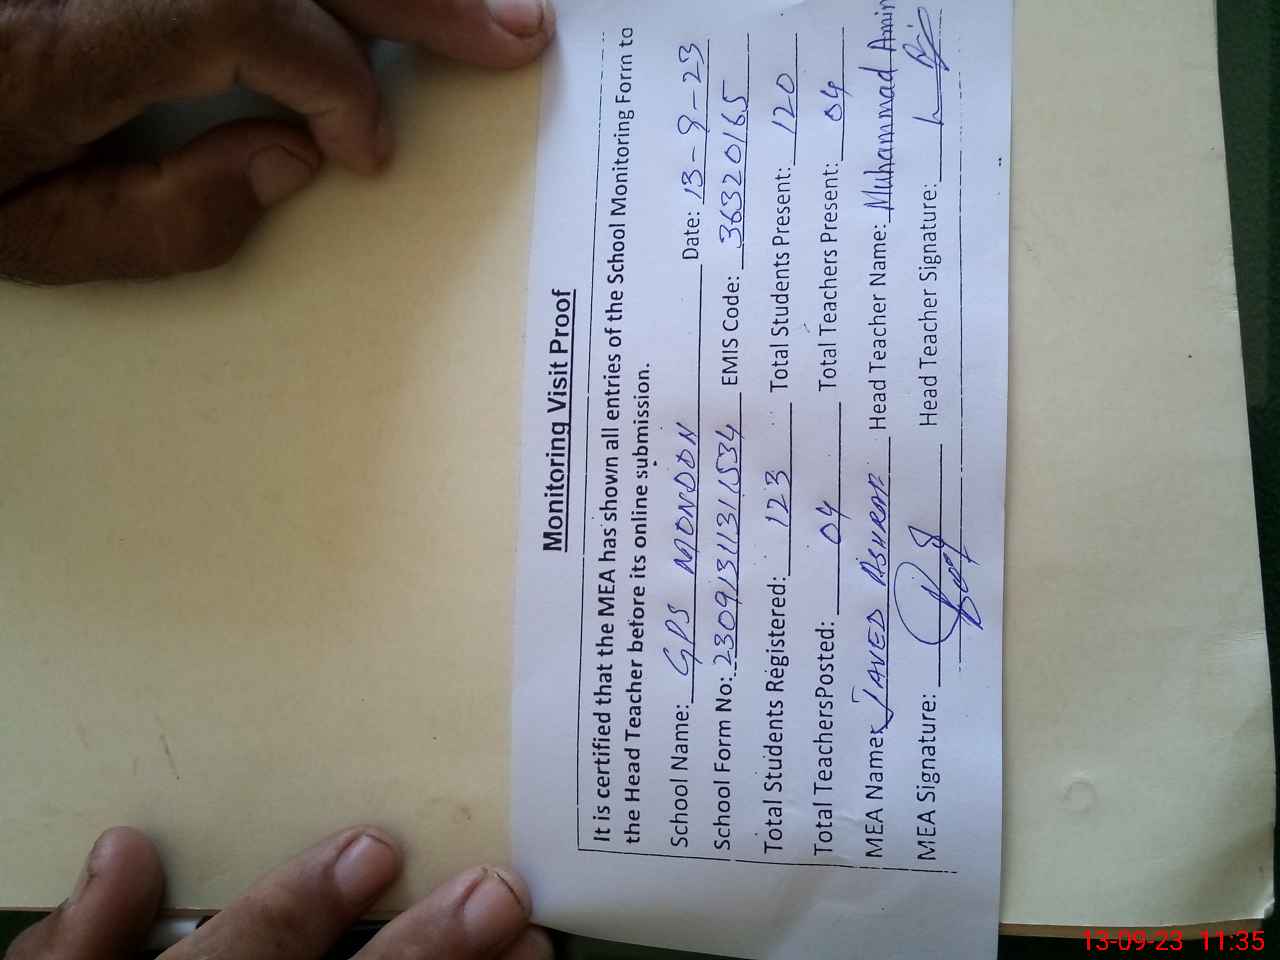 Monitoring Visit Proof
It is certified that the MEA has shown all entries of the School Monitoring Form to
the Head Teacher before its online submission.
School Name: GPS MONDDN Date: 13-9-23
School Form No: 2309131131,1534 EMIS Code: 36320165
Total Students Registered: 123 Total Students Present: 120
Total TeachersPosted: 04 Total Teachers Present: 04
MEA Name: JAVED ASHRAF Head Teacher Name: Muhammad Amin
MEA Signature: Head Teacher Signature:
13-09-23 11:35